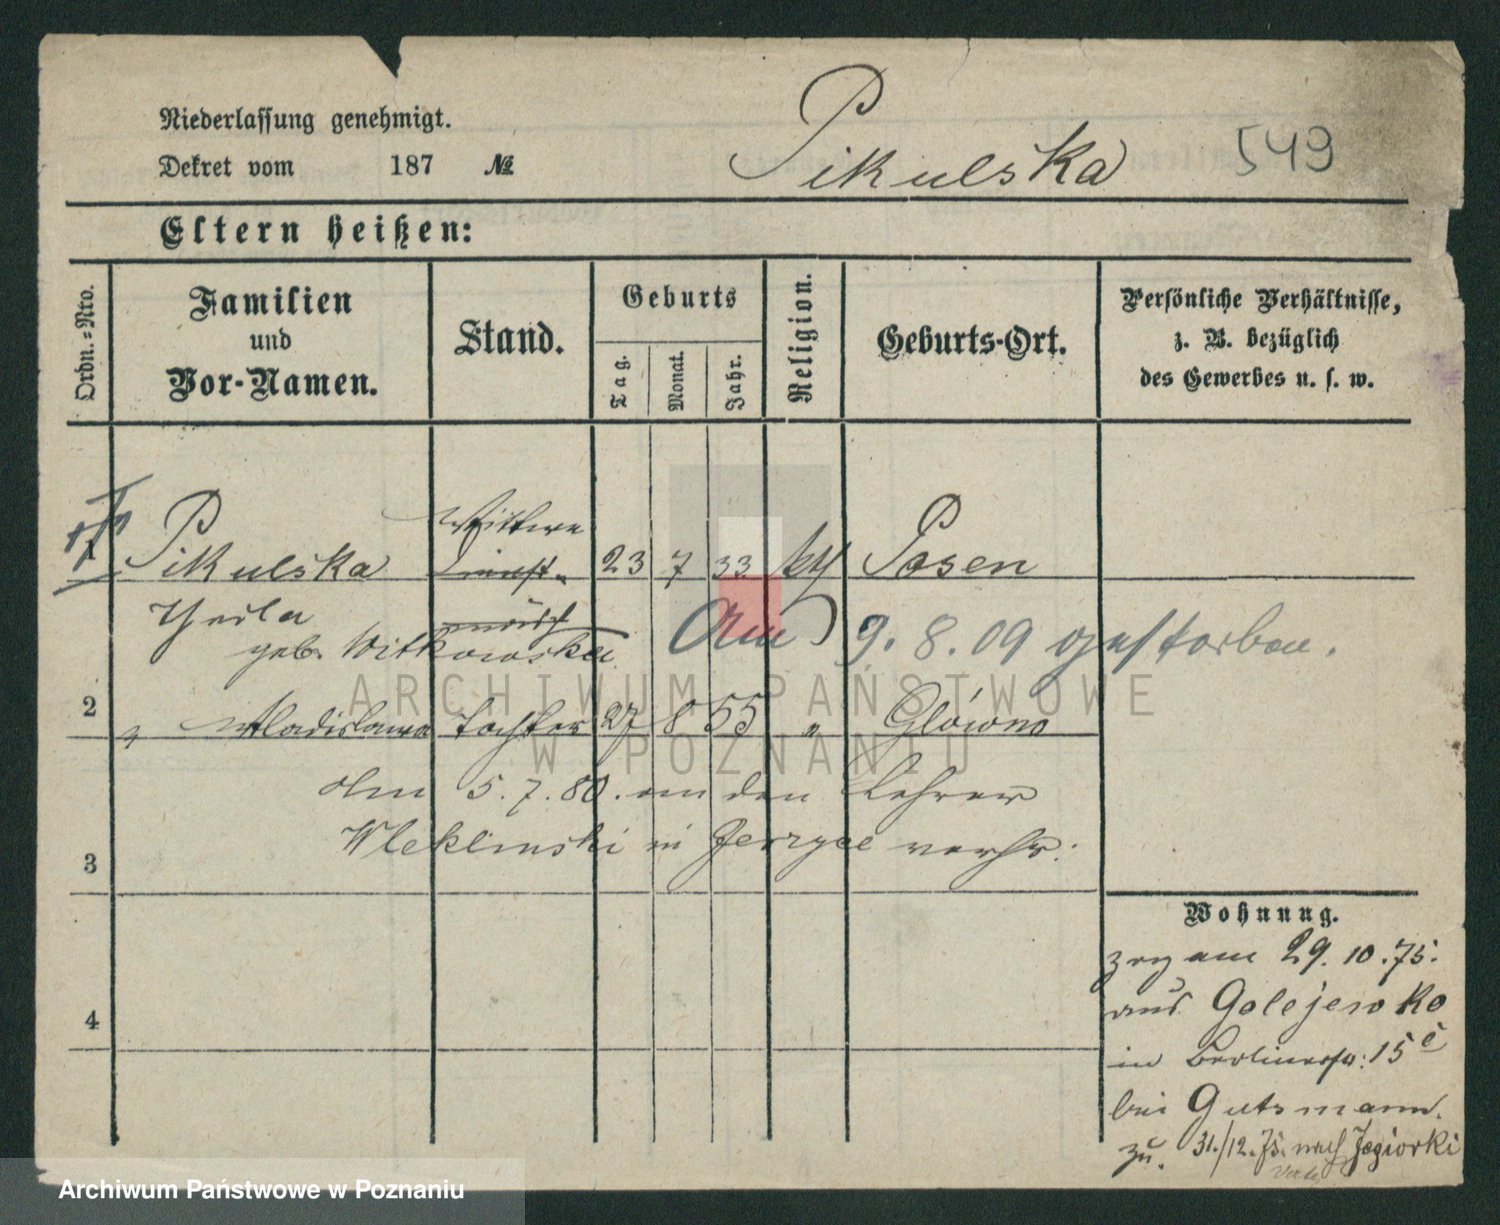 Niederlassung genehmigt.
Dekret vom 187 №
Pikulska 549
Eltern heißen:
Ordn.=Nro.
Familien
und
Vor-Namen.
Stand.
Geburts
Tag.
Monat.
Jahr.
Religion.
Geburts-Ort.
Persönliche Verhältnisse,
z. B. bezüglich
des Gewerbes u. s. w.
Wittwe
1 Pikulska Dienst- 23 7 33 Posen
geb. Witkowska
Am 9. 8. 09 gestorben.
2 " Wladislawa Tochter 27 8 55 " Glówno
Am 5. 7. 80. an den Lehrer
Wleklinski in Jerzyce verh:
3
4
Wohnung.
zog am 29. 10. 75.
aus Golejewko
in Berlinerstr: 15 c
bei Gutsmann.
zu. 31./12. 75. nach Jeziorki
ARCHIWUM PAŃSTWOWE
W POZNANIU
Archiwum Państwowe w Poznaniu